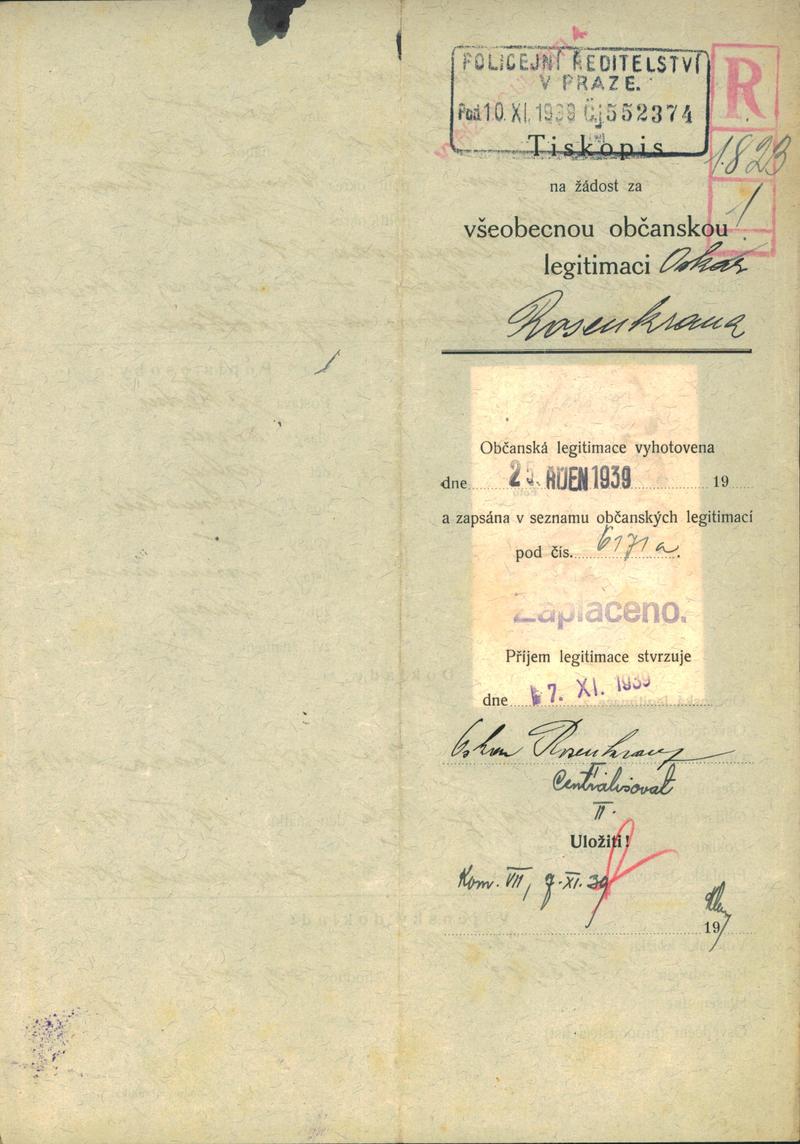 POLICEJNÍ ŘEDITELSTVÍ
V PRAZE.
Pod 10. XI. 1939 Čj 552374
R
1823
1
Tiskopis
na žádost za
všeobecnou občanskou
legitimaci Oskar
Rosenkranz
Občanská legitimace vyhotovena
dne 25. ŘÍJEN 1939 19
a zapsána v seznamu občanských legitimací
pod čís. 6171a.
Zaplaceno.
Příjem legitimace stvrzuje
dne 7. XI. 1939
Oskar Rosenkranz
Centralisovat
II.
Uložiti!
Kom. VII, 7. XI. 39
19